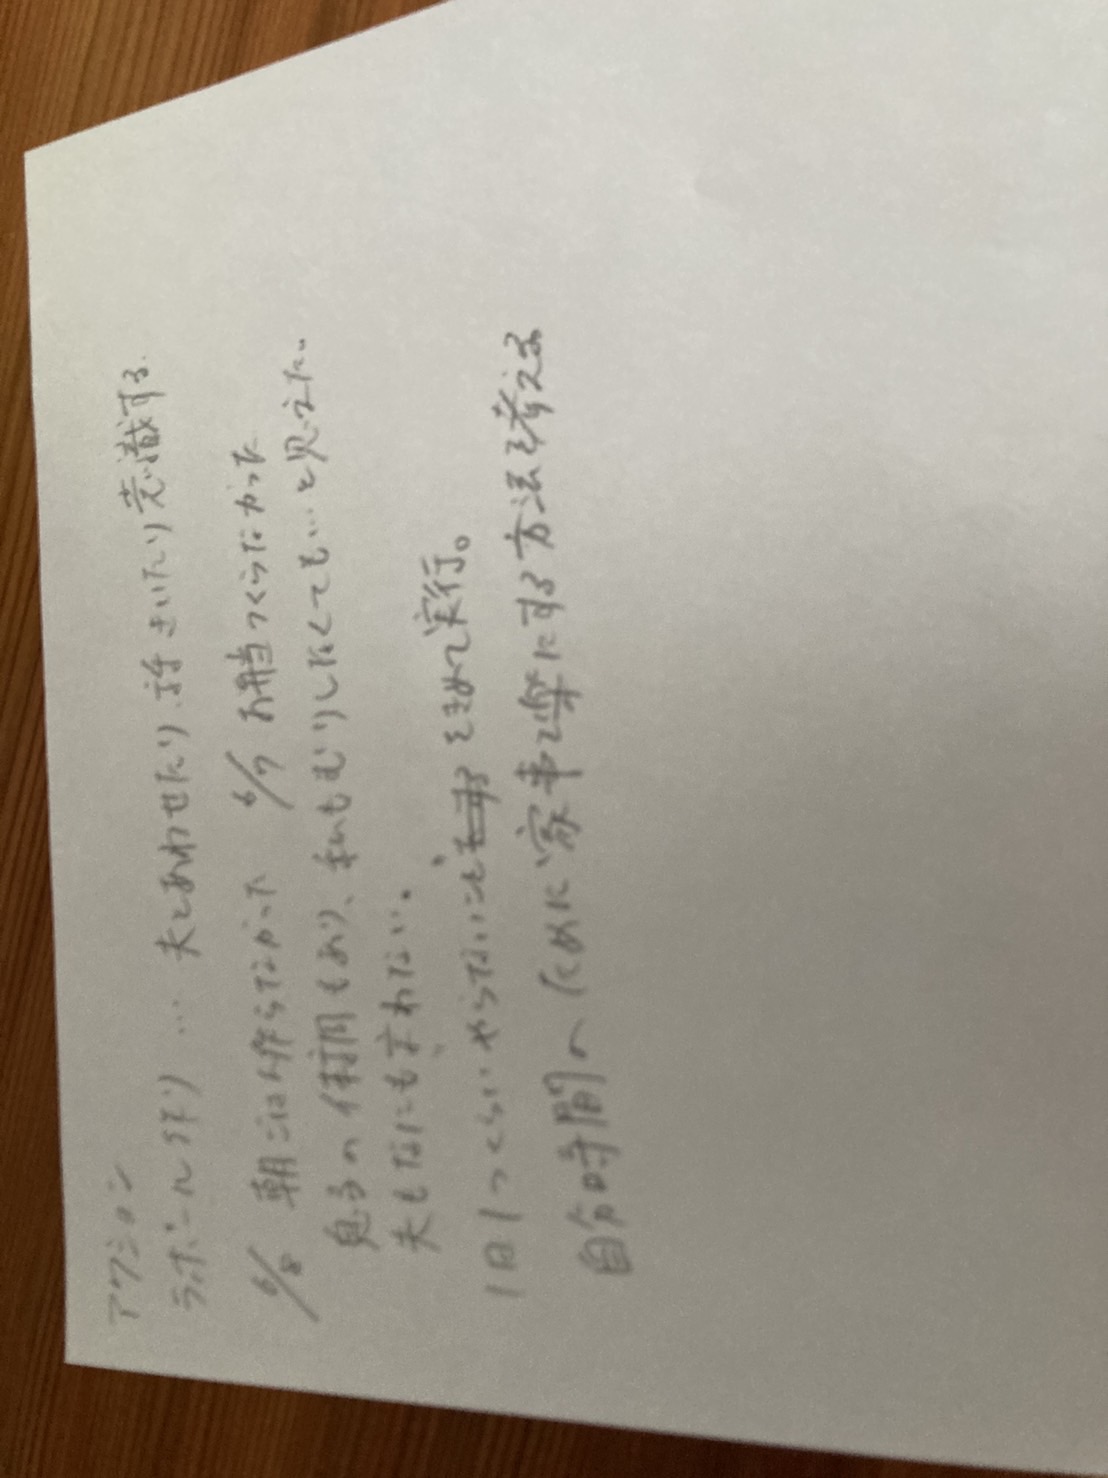 アクション
ラポール作り … 夫とあわせたり、話をきいたり意識する.
6/8 朝ごはん作らなかった 6/7 お弁当つくらなかった
息子の体調もあり、私もむりしなくても…と思えた。
夫もなにも言わない.
1日1つくらいやらないことをきめて実行。
自分時間のために家事を楽にする方法を考える